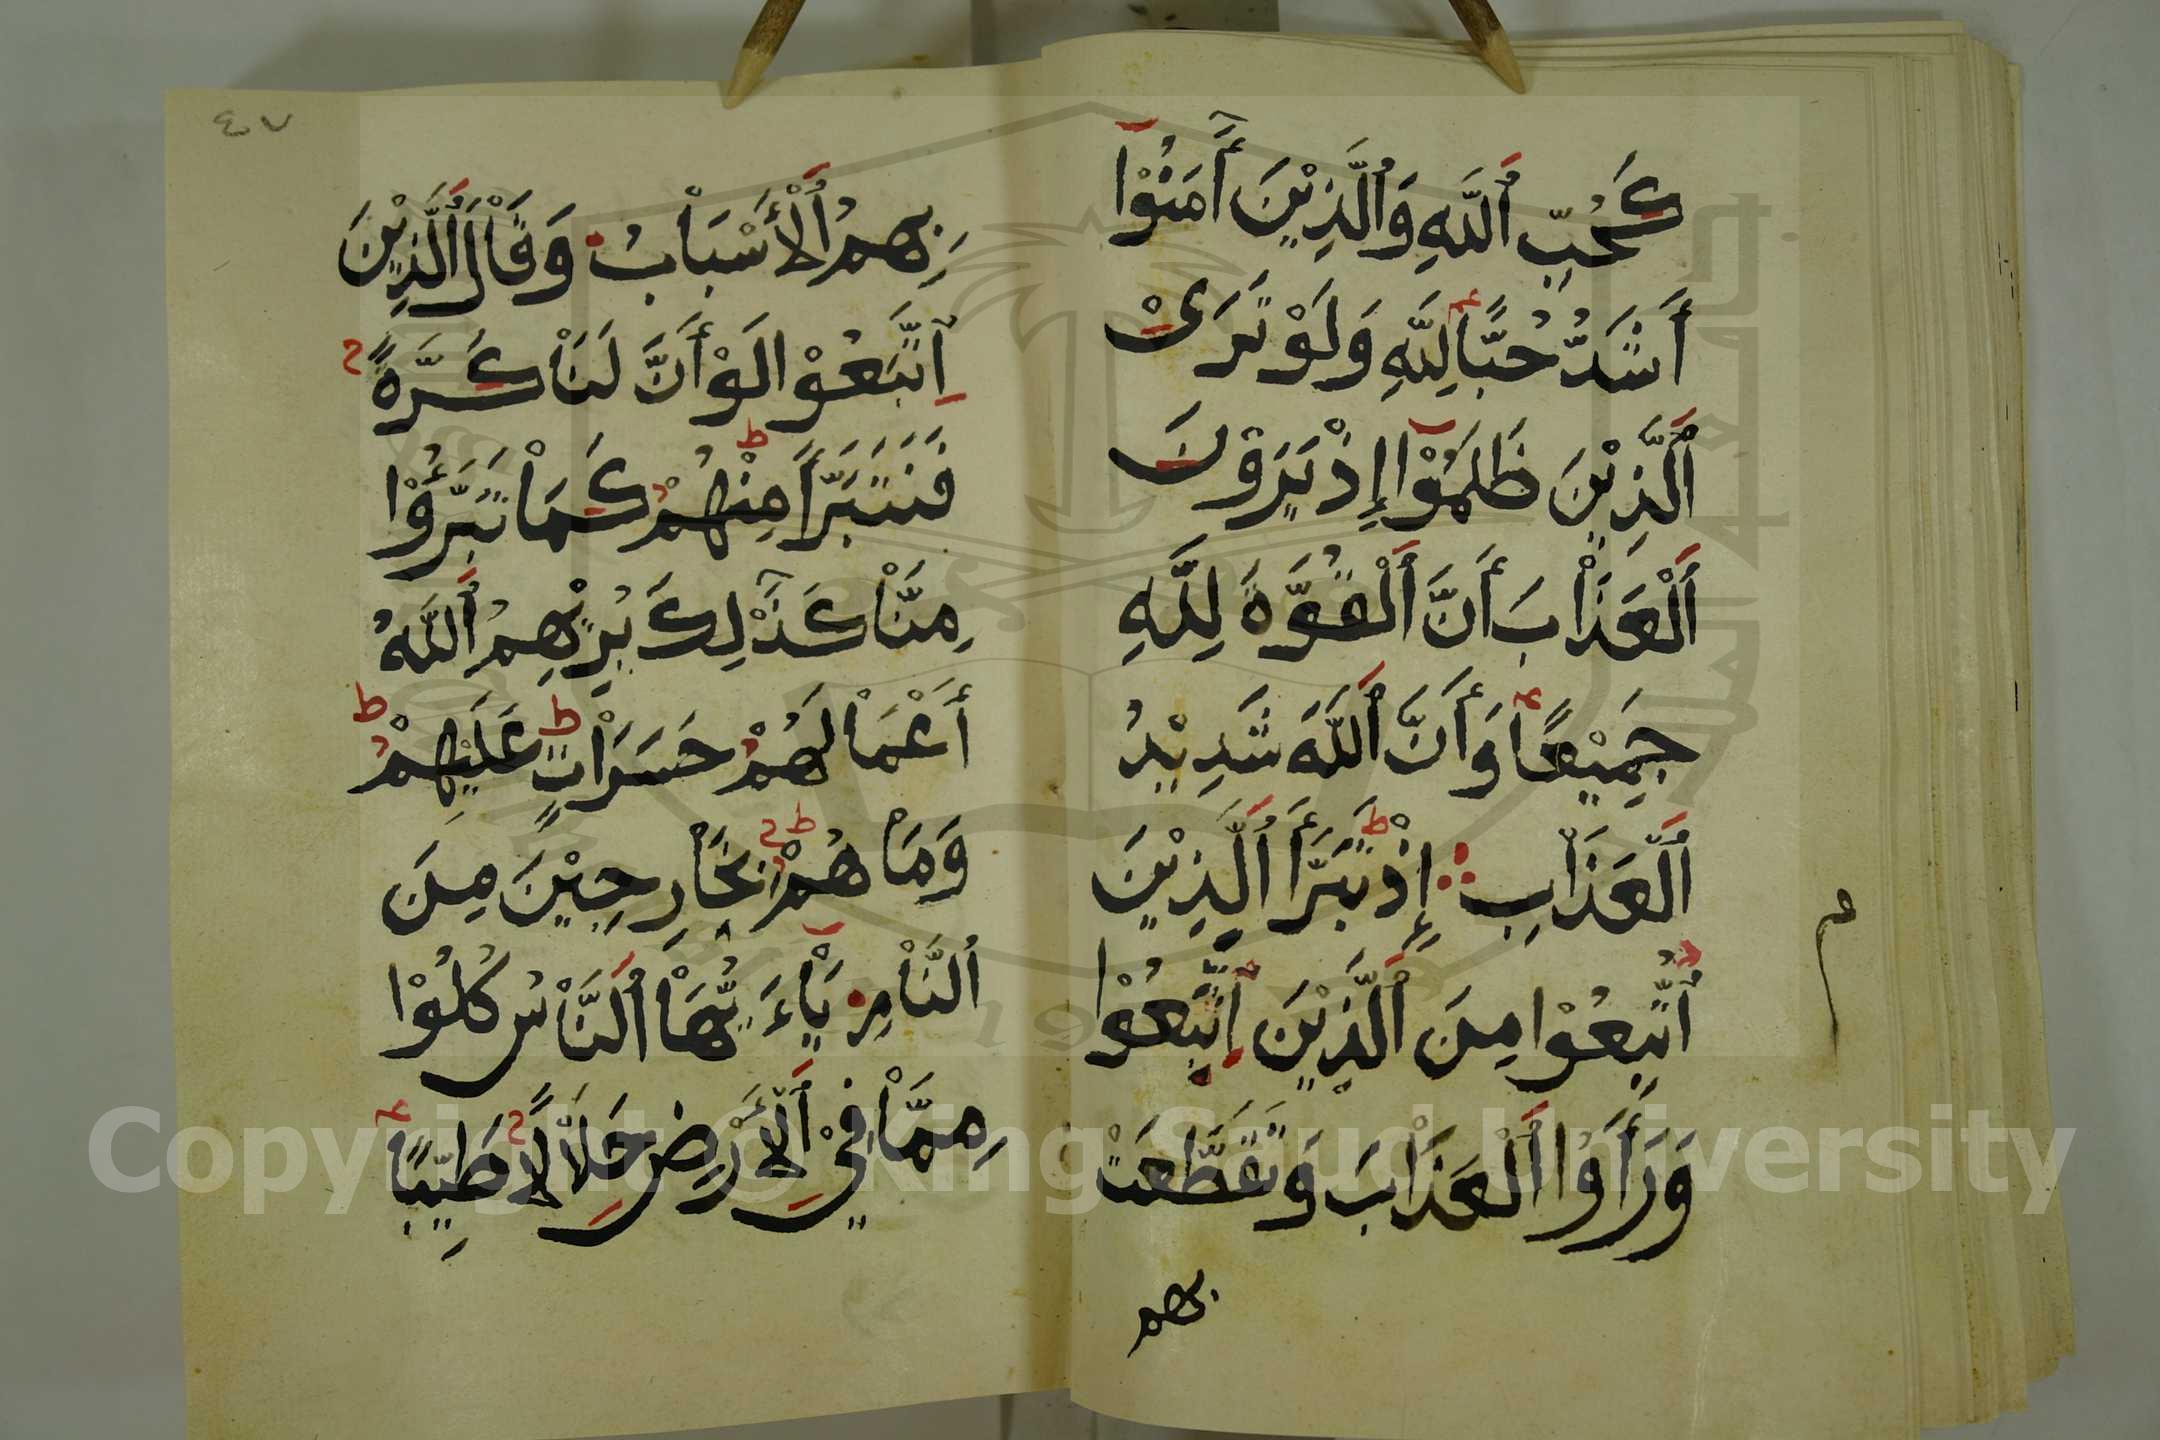 كَحُبِّ ٱللَّهِ وَٱلَّذِيْنَ أٓمَنُوْا
أَشَدُّ حُبًّا لِلَّهِ وَلَوْ تَرَىْ
ٱلَّذِيْنَ ظَلَمُوْا إِذْ يَرَوْنَ
ٱلْعَذَاْبَ أَنَّ ٱلْقُوَّةَ لِلَّهِ
جَمِيْعًا وَأَنَّ ٱللَّهَ شَدِيْدُ
ٱلْعَذَاْبِ إِذْ تَبَرَّأَ ٱلَّذِيْنَ
ٱتُّبِعُوْا مِنَ ٱلَّذِيْنَ ٱتَّبَعُوْا
وَرَأَوُا ٱلْعَذَاْبَ وَتَقَطَّعَتْ
بهم
م
٤٧
بِهِمُ ٱلْأَسْبَاْبُ وَقَاْلَ ٱلَّذِيْنَ
ٱتَّبَعُوْا لَوْ أَنَّ لَنَاْ كَرَّةً
فَنَتَبَرَّأَ مِنْهُمْ كَمَاْ تَبَرَّؤُوْا
مِنَّاْ كَذَٰلِكَ يُرِيْهِمُ ٱللَّهُ
أَعْمَاْلَهُمْ حَسَرَاْتٍ عَلَيْهِمْ
وَمَاْ هُمْ بِخَاْرِجِيْنَ مِنَ
ٱلنَّاْرِ يَاْءَيُّهَاْ ٱلنَّاْسُ كُلُوْا
مِمَّاْ فِيْ ٱلْأَرْضِ حَلَاْلًا طَيِّبًا
Copyright © King Saud University